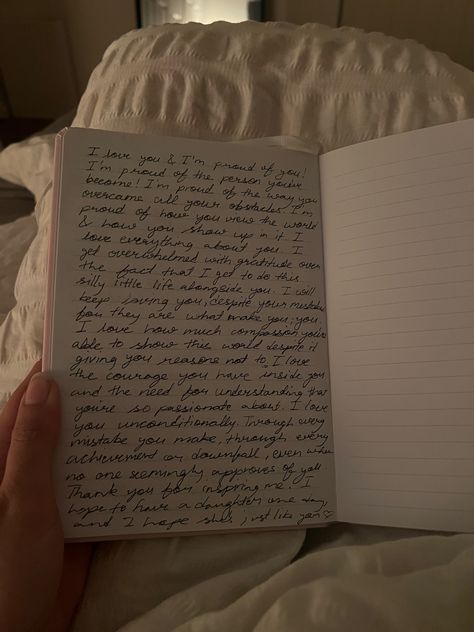 I love you & I'm proud of you!
I'm proud of the person you've
become! I'm proud of the way you
overcame all your obstacles. I'm
proud of how you view the world
& how you show up in it. I
love everything about you. I
get overwhelmed with gratitude over
the fact that I get to do this
silly little life alongside you. I will
keep loving you, despite your mistakes
for they are what make you, you.
I love how much compassion you're
able to show this world despite it
giving you reasons not to. I love
the courage you have inside you
and the need for understanding that
you're so passionate about. I love
you unconditionally. Through every
mistake you make, through every
achievement or downfall, even when
no one seemingly approves of y'all.
Thank you for inspiring me! I
hope to have a daughter one day
and I hope she's just like you ♡